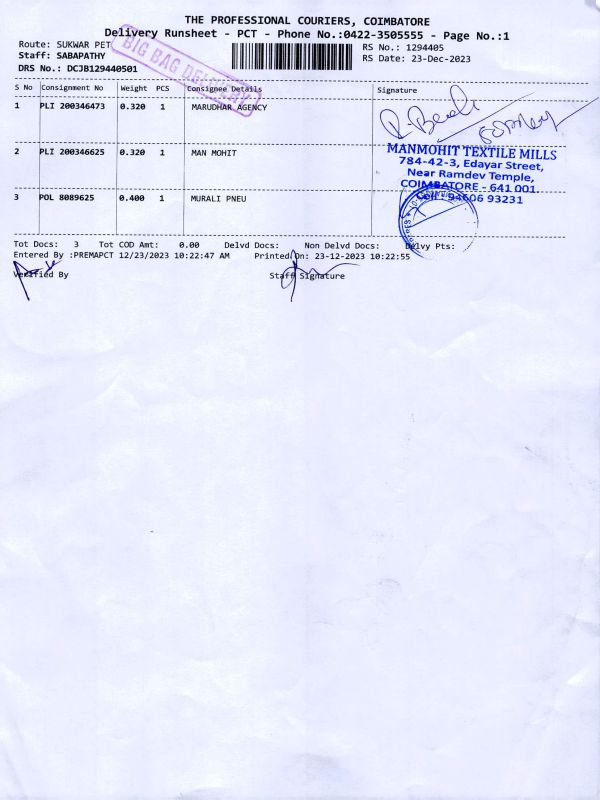 THE PROFESSIONAL COURIERS, COIMBATORE
Delivery Runsheet - PCT - Phone No.:0422-3505555 - Page No.:1
Route: SUKWAR PET
RS No.: 1294405
Staff: SABAPATHY
RS Date: 23-Dec-2023
DRS No.: DCJB129440501
BIG BAG DELIVERY
S No Consignment No Weight PCS Consignee Details Signature
1 PLI 200346473 0.320 1 MARUDHAR AGENCY
2 PLI 200346625 0.320 1 MAN MOHIT
MANMOHIT TEXTILE MILLS
784-42-3, Edayar Street,
Near Ramdev Temple,
COIMBATORE - 641 001.
Cell : 94606 93231
3 POL 8089625 0.400 1 MURALI PNEU
Tot Docs: 3 Tot COD Amt: 0.00 Delvd Docs: Non Delvd Docs: Delvy Pts:
Entered By :PREMAPCT 12/23/2023 10:22:47 AM Printed On: 23-12-2023 10:22:55
Verified By Staff Signature